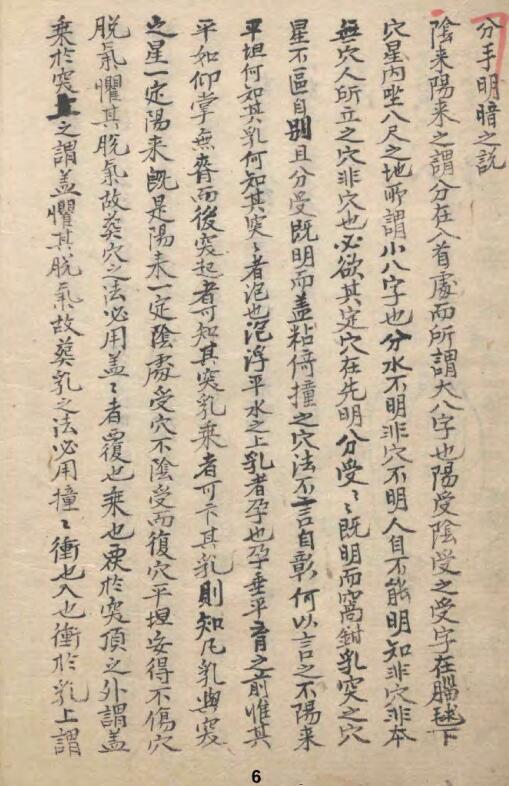 分手明暗之説
陰来陽来之謂分在入首處而所謂大八字也陽受陰受之受字在腦毬下
穴星内坐八尺之地所謂小八字也分水不明非穴不明人目不能明知非穴非本
無穴人所立之穴非穴也必欲其定穴在先明分受〻既明而窩鉗乳突之穴
星不區自別且分受既明而盖粘倚撞之穴法不言自彰何以言之不陽来
平坦何如其乳何知其突〻者泡也泡浮平水之上乳者孕也孕垂平育之前惟其
平如仰掌無脊而後突起者可知其突乳乘者可下其乳則知凡乳與突
之星一定陽来既是陽来一定陰處受穴不陰受而復穴平坦安得不傷穴
脱氣懼其脱氣故葬穴之法必用盖〻者覆也乘也覆於突頂之外謂盖
乘於突上之謂盖懼其脱氣故葬乳之法必用撞〻衝也入也衝於乳上謂
6